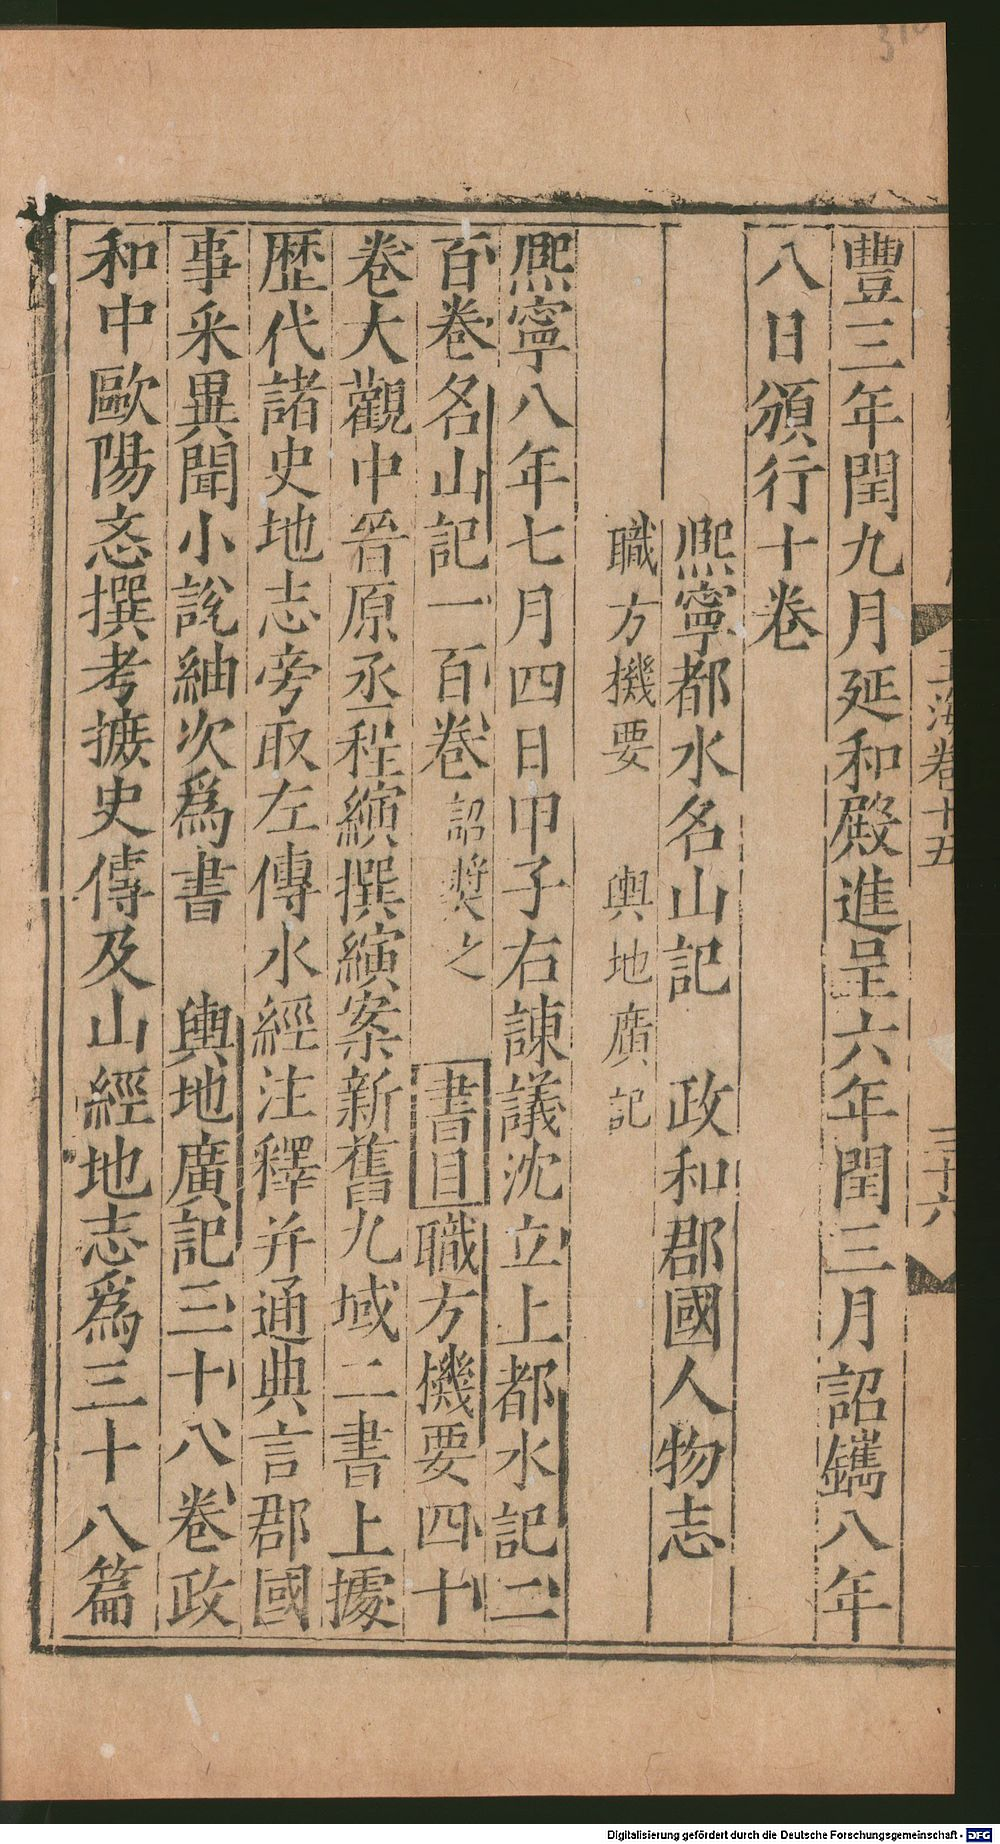 豐三年閏九月延和殿進呈六年閏三月詔鐫八年
八日頒行十卷
熙寧都水名山記 政和郡國人物志
職方機要 輿地廣記
熙寧八年七月四日甲子右諫議沈立上都水記二
百卷名山記一百卷詔奬之 書目職方機要四十
卷大觀中晉原丞程縯撰縯案新舊九域二書上據
歷代諸史地志旁取左傳水經注釋并通典言郡國
事采異聞小說紬次爲書 輿地廣記三十八卷政
和中歐陽忞撰考摭史傳及山經地志爲三十八篇
玉海卷十五
三十六
Digitalisierung gefördert durch die Deutsche Forschungsgemeinschaft - DFG